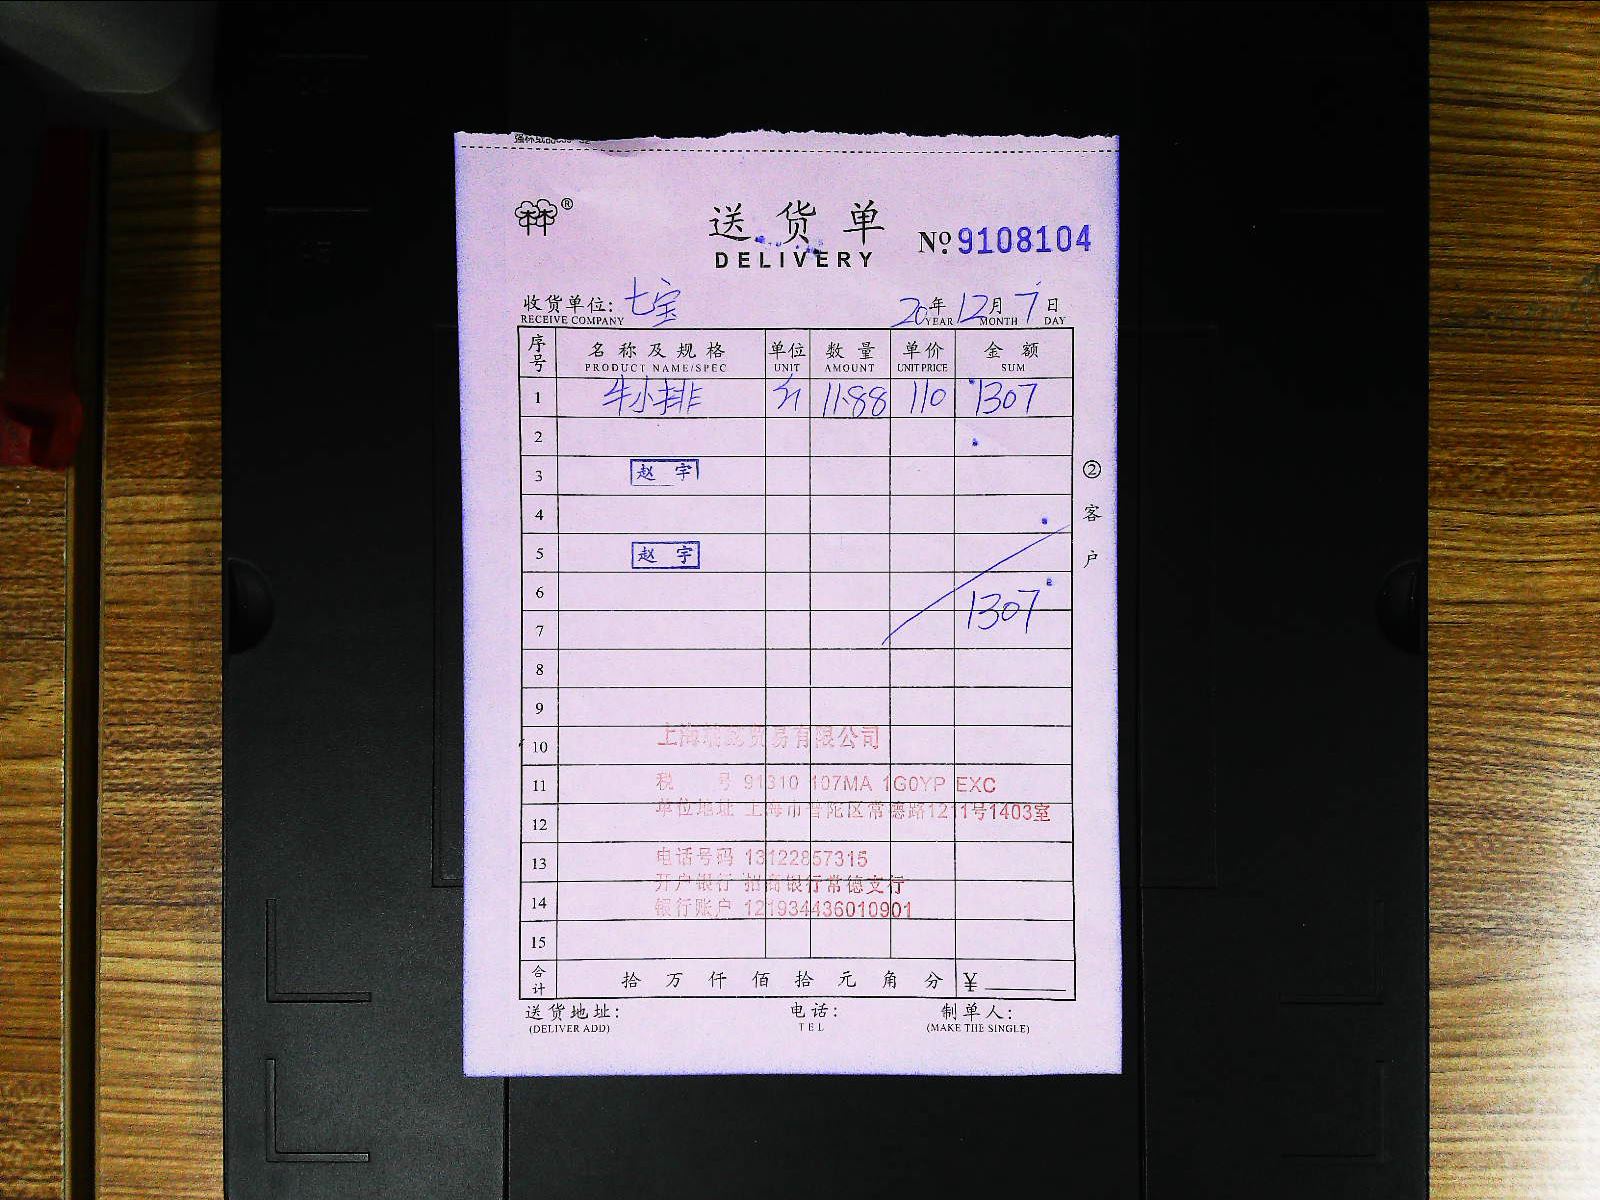 送货单
DELIVERY
№ 9108104
收货单位: 七宝 20年12月7日
RECEIVE COMPANY YEAR MONTH DAY
序号 名称及规格 单位 数量 单价 金额
PRODUCT NAME/SPEC UNIT AMOUNT UNIT PRICE SUM
1 牛小排 斤 11.88 110 1307
2
3 赵宇
4
5 赵宇
6
1307
7
8
9
10 上海 贸易有限公司
11 税号 91310 107MA 1G0YP EXC
单位地址 上海市普陀区常德路1211号1403室
12
13 电话号码 13122857315
开户银行 招商银行常德支行
14 银行账户 121934436010901
15
合计 拾 万 仟 佰 拾 元 角 分 ¥
送货地址: 电话: 制单人:
(DELIVER ADD) TEL (MAKE THE SINGLE)
② 客户